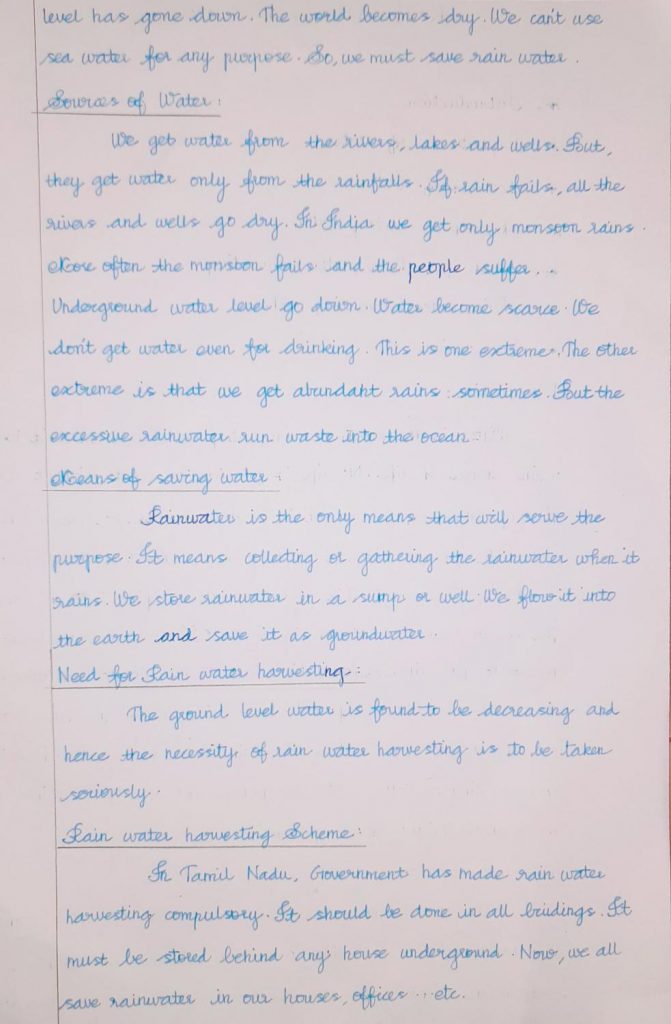 level has gone down. The world becomes dry. We can't use
sea water for any purpose. So, we must save rain water.
Sources of Water:
We get water from the rivers, lakes and wells. But,
they get water only from the rainfalls. If rain fails, all the
rivers and wells go dry. In India we get only monsoon rains.
More often the monsoon fails and the people suffer...
Underground water level go down. Water become scarce. We
don't get water even for drinking. This is one extreme. The other
extreme is that we get abundant rains sometimes. But the
excessive rainwater run waste into the ocean.
Means of saving water:
Rainwater is the only means that will serve the
purpose. It means collecting or gathering the rainwater when it
rains. We store rainwater in a sump or well. We flow it into
the earth and save it as groundwater.
Need for Rain water harvesting:
The ground level water is found to be decreasing and
hence the necessity of rain water harvesting is to be taken
seriously.
Rain water harvesting Scheme:
In Tamil Nadu, Government has made rain water
harvesting compulsory. It should be done in all briudings. It
must be stored behind any house underground. Now, we all
save rainwater in our houses, offices...etc.